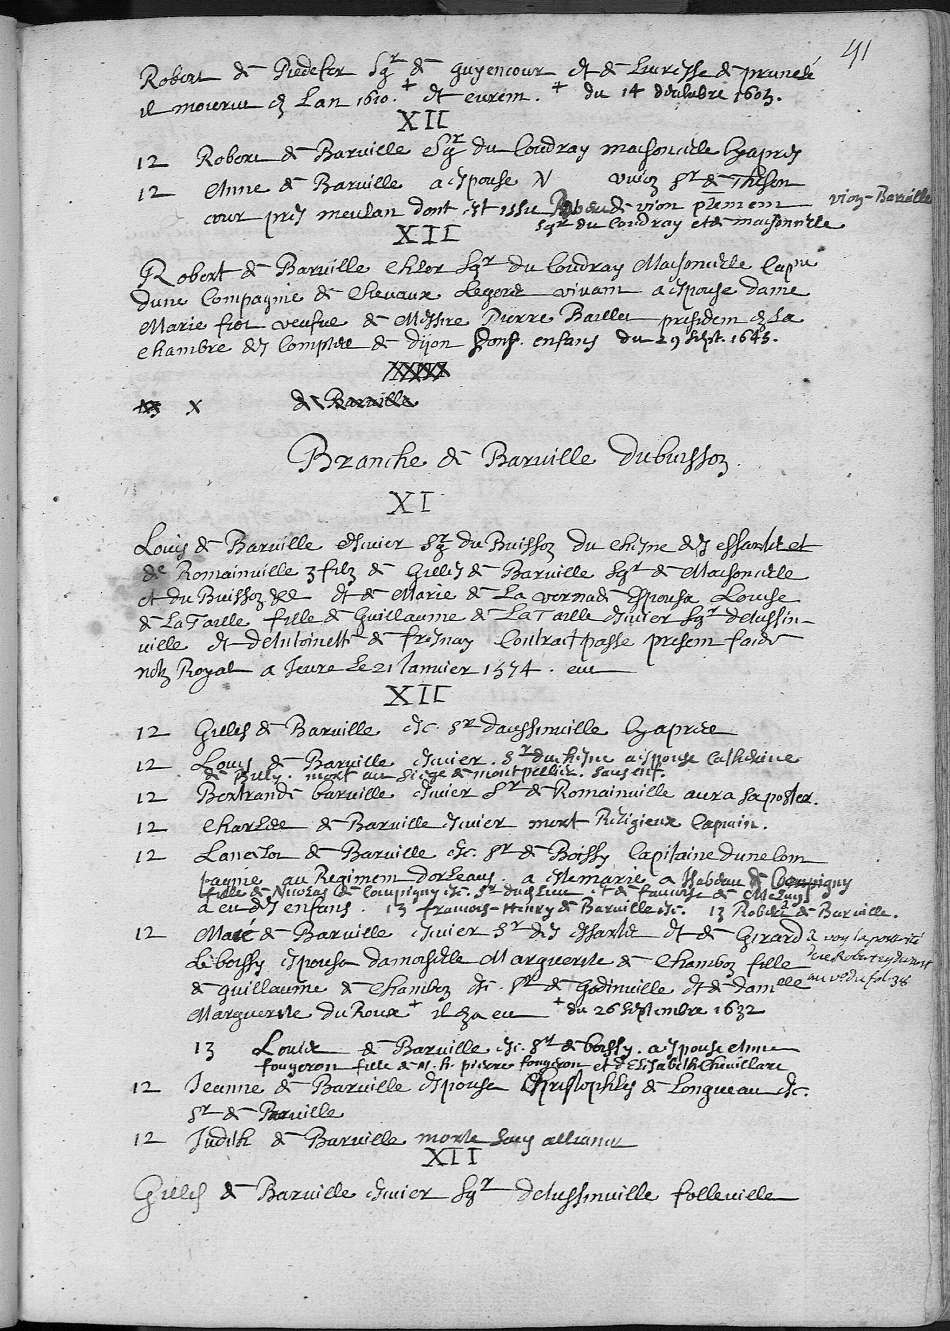 41
Robert de Piedefer Sgr de Guyencour et de Lucresse de prunelé
il mourut en Lan 1610. + et eurent. + du 14 octobre 1603.
XII
12 Robert de Barville Sgr du Coudray maisoncelle cy apres
12 Anne de Barville a espouse N vion Sr de Thesson
cour pres meulan dont est issu de vion
sgr du coudray et de maisoncelle
vion-Barville
XII
Robert de Barville Chler Sgr du Coudray Maisoncelle Capne
dune Compagnie de chevaux Legers vivant a espouse dame
Marie fiot veufve de Messire Pierre Baillet president en La
chambre des Comptes de dijon Dont enfans du 29 sept. 1645.
XXXXX
X de Barville
Branche de Barville du buisson
XI
Louis de Barville Escuier Sr du Buisson du chesne des essarts et
de Romainville 3 filz de Gilles de Barville Sgr de Maisoncelle
et du Buisson &c et de Marie de La vernade Espousa Louise
de La Taille fille de Guillaume de La Taille escuier Sgr detussin-
ville et de Antoinette de fresnay Contract passe presens
notz Royal a Jeure Le 21 Janvier 1574. eut
XII
12 Gilles de Barville &c. Sr daussinville cy apres
12 Louis de Barville escuier. Sr du chesne a espouse Catherine
de Buly. mort au siege de montpellier. sans enf.
12 Bertrand de barville escuier Sr de Romainville aura sa poster.
12 Charles de Barville escuier mort Religieux Capucin.
12 Lancelot de Barville &c. Sr de Boissy Capitaine dune Com
pagnie au Regiment dorleans. a este marie a Isabeau de Compigny
fille de Nicolas de Compigny &c. Sr et de francoise de
a eu des enfans 13 francois-Henry de Barville &c. 13 Robert de Barville.
12 Marc de Barville escuier Sr des essarts et de Girard
Le boissy espousa damoiselle Marguerite de Chambon fille
de guillaume de Chambon &c. Sr de Godinville et de damelle
Marguerite du Roux + il en a eu + du 26 septembre 1632
& voy la posterité
au vo du fol. 38
13 Louis de Barville &c. Sr de boissy. a espouse Anne
fougeron fille de n. h. pierre fougeron et d'Elisabeth Chevillard
12 Jeanne de Barville espousa Christophles de Longueau &c.
Sr de Barville
12 Judith de Barville morte sans alliance
XII
Gilles de Barville escuier Sgr detussinville folleville